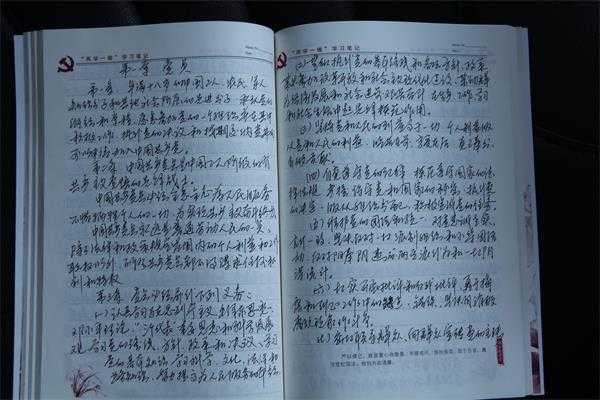 "两学一做"学习笔记
第一章 党员
第一条 年满十八岁的中国工人、农民、军人
知识分子和其他社会阶层的先进分子,承认党的
纲领和章程,愿意参加党的一个组织并在其中
积极工作、执行党的决议和按期交纳党费的
可以申请加入中国共产党。
第二条 中国共产党党员是中国工人阶级的有
共产主义觉悟的先锋战士。
中国共产党党员必须全心全意为人民服务
不惜牺牲个人的一切,为实现共产主义奋斗终身
中国共产党党员永远是劳动人民的一员,
除了法律和政策规定范围内的个人利益和工作
职权以外,所有共产党员都不得谋求任何私
利和特权
第三条 党员必须履行下列义务:
(一)认真学习马克思列宁主义、毛泽东思想、
邓小平理论、"三个代表"重要思想和科学发展
观,学习党的路线、方针、政策和决议,学习
党的基本知识,学习科学、文化、法律和
业务知识,努力提高为人民服务的本领
"两学一做"学习笔记
(二)贯彻执行党的基本路线和各项方针、政策,
带头参加改革开放和社会主义现代化建设,带动群众
为经济发展和社会进步艰苦奋斗,在生产、工作、学习
和社会生活中起先锋模范作用。
(三)坚持党和人民的利益高于一切,个人利益服
从党和人民的利益,吃苦在前,享受在后,克己奉公,
多做贡献。
(四)自觉遵守党的纪律,模范遵守国家的法
律法规,严格保守党和国家的秘密,执行党
的决定,服从组织分配,积极完成党的任务
(五)维护党的团结和统一,对党忠诚老实,
言行一致,坚决反对一切派别组织和小集团活
动,反对阳奉阴违的两面派行为和一切阴
谋诡计。
(六)切实开展批评和自我批评,勇于揭
露和纠正工作中的缺点、错误,坚决同消极
腐败现象作斗争。
(七)密切联系群众,向群众宣传党的主张